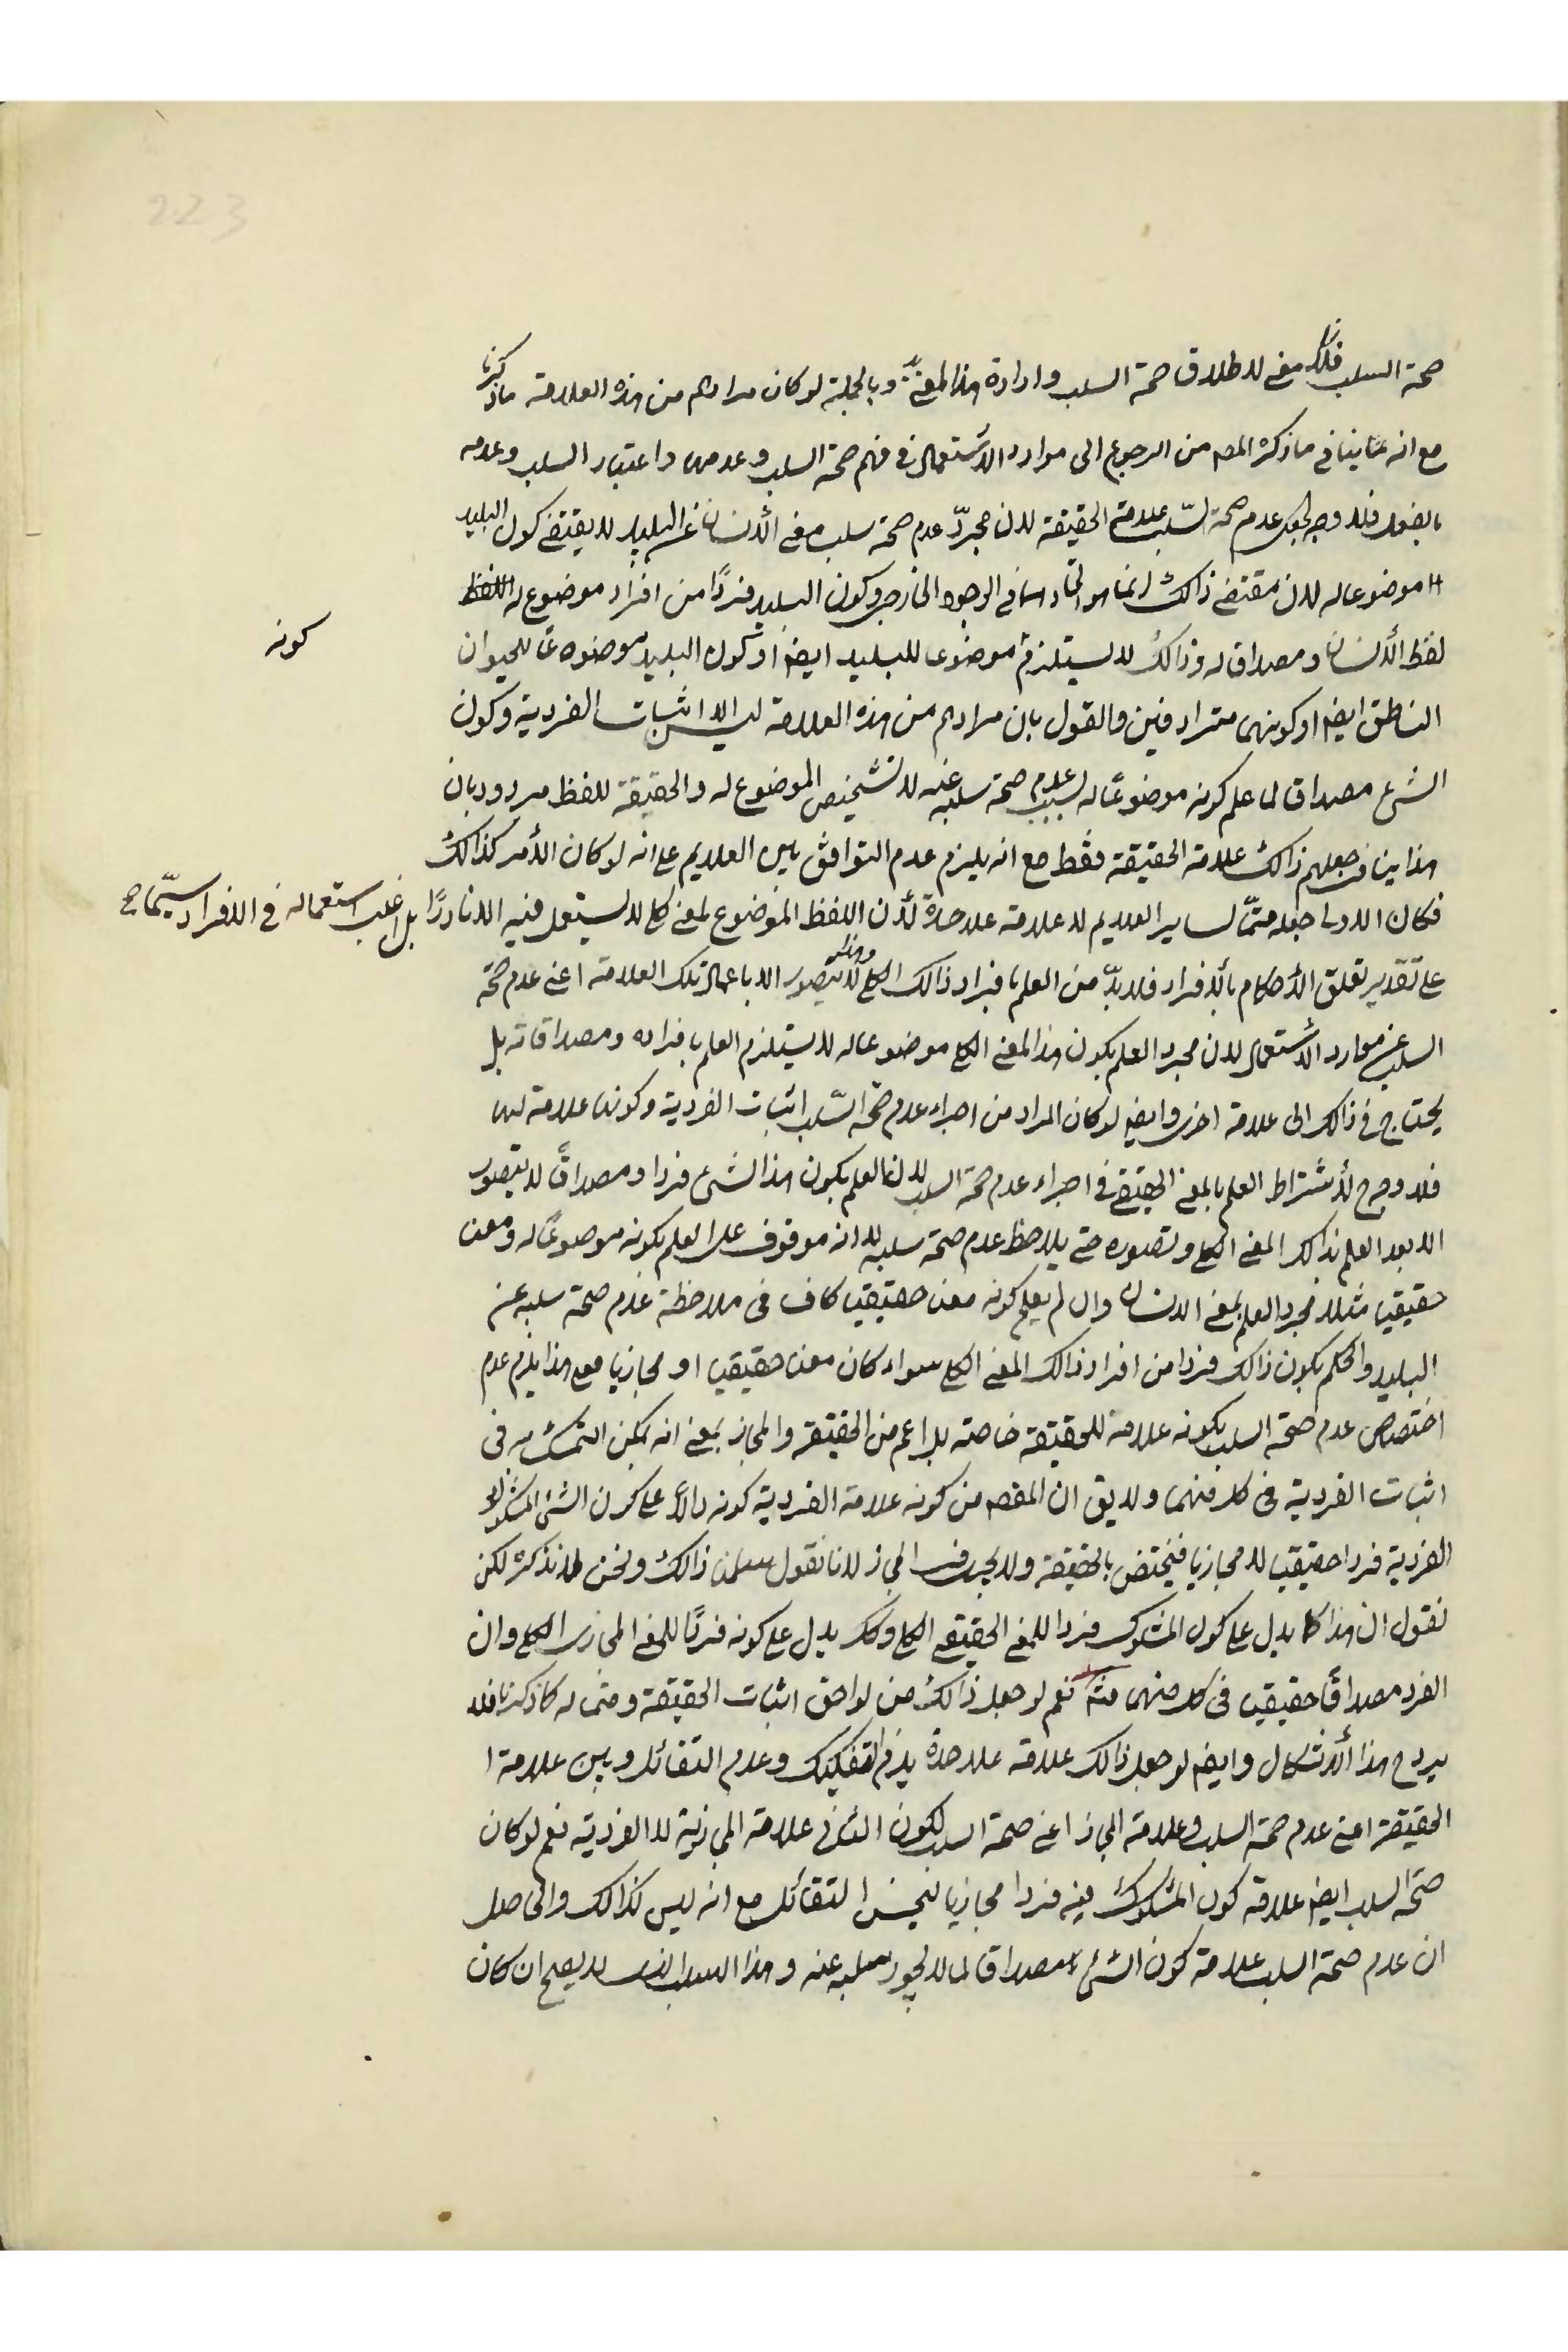 223
صحة السلب فلا معنى لاطلاق صحة السلب وارادة هذا المعنى وبالجملة لو كان مرادهم من هذه العلامة ما ذكرنا
مع انه ينافي ما ذكره المصـ من الرجوع الى موارد الاستعمال في فهم صحة السلب وعدمها واعتبار السلب وعدمه
فلا وجه لجعل عدم صحة السّلب علامة الحقيقة لان مجردّ عدم صحة سلب معنى الأنسان عن البليد لا يقتضى كون البليد
موضوعا له لان مقتضى ذالك انما هو اتحادهما في الوجود الخارجى وكون البليد فردًا من افراد موضوع له اللفظ
لفظ الأنسان ومصداقا له وذالك لا يستلزم موضوعا للبليد ايضا او كون البليد موضوعًا للحيوان
كونه
الناطق ايضا او كونهما مترادفين والقول بان مرادهم من هذه العلامة ليس الا اثبات الفردية وكون
الشىء مصداقا لما علم كونه موضوعًا له بسبب عدم صحة سلبه عنه لا تشخيص الموضوع له والحقيقة للفظ مردود بان
هذا ينافى جعلهم ذالك علامة الحقيقة فقط مع انه يلزم عدم التوافق بين العلايم على انه لو كان الأمر كذالك
فكان الاولى جعله متمّا لساير العلايم لا علامة علاحدة لأن اللفظ الموضوع لمعنى كلى لا يستعمل فيه الا نادرًا بل اغلب استعماله في الافراد سيّما ح
على تقدير تعلق الأحكام بالأفراد فلا بدّ من العلم بافراد ذالك الكلى وهذا لا يتصور الا باعمال تلك العلامة اعنى عدم صحة
السلب عن موارد الأستعمال لان مجرد العلم بكون هذا المعنى الكلى موضوعا له لا يستلزم العلم بافراده ومصداقاته بل
يحتاج في ذالك الى علامة اخرى وايضا لو كان المراد من اجراء عدم صحة السّلب اثبات الفردية وكونها علامة لها
فلا وجه ح لأشتراط العلم بالمعنى الحقيقي في اجراء عدم صحة السلب لان العلم بكون هذا الشىء فردا ومصداقًا لا يتصور
الا بعد العلم بذالك المعنى الكلى وتصوره حتى يلاحظ عدم صحة سلبه لا انه موقوف على العلم بكونه موضوعًا له ومعنى
حقيقيا مثلا فمجرد العلم بمعنى الانسان وان لم يعلم كونه معنى حقيقيا كاف في ملاحظة عدم صحة سلبه عن
البليد والحكم بكون ذالك فردا من افراد ذالك المعنى الكلى سواء كان معنى حقيقيا او مجازيا فعلى هذا يلزم عدم
اختصاص عدم صحة السلب بكونه علامة للحقيقة خاصة بل اعم من الحقيقة والمجاز بمعنى انه يمكن التمسك به في
اثبات الفردية في كل منهما ولا يق ان المقصـ من كونه علامة الفردية كونه دالاً على كون الشىء المشكوك
الفردية فردا حقيقيا لا مجازيا فيختص بالحقيقة ولا يجرى في المجاز لانا نقول سلمنا ذالك ونحن لا نذكره لكن
نقول ان هذا كما يدل على كون المشكوك فردا للمعنى الحقيقى الكلى وكك يدل على كونه فردًا للمعنى المجازى الكلى وان
الفرد مصداقًا حقيقيا في كل منهما نعم لو جعل ذالك من لواحق اثبات الحقيقة ومتما له كما ذكرنا فلا
يرد ح هذا الأشكال وايضا لو جعل ذالك علامة علاحدة يلزم التفكيك وعدم التقابل وبين علامة ا
الحقيقة اعنى عدم صحة السلب وعلامة المجاز اعنى صحة السلب لكون الثانى علامة المجازية لا الفردية نعم لو كان
صحة السلب ايضا علامة كون المشكوك فيه فردا مجازيا لحسن التقابل مع انه ليس كذالك والحاصل
ان عدم صحة السلب علامة كون الشىء مصداقا لما لا يجوز سلبه عنه وهذا لا يصح ان كان